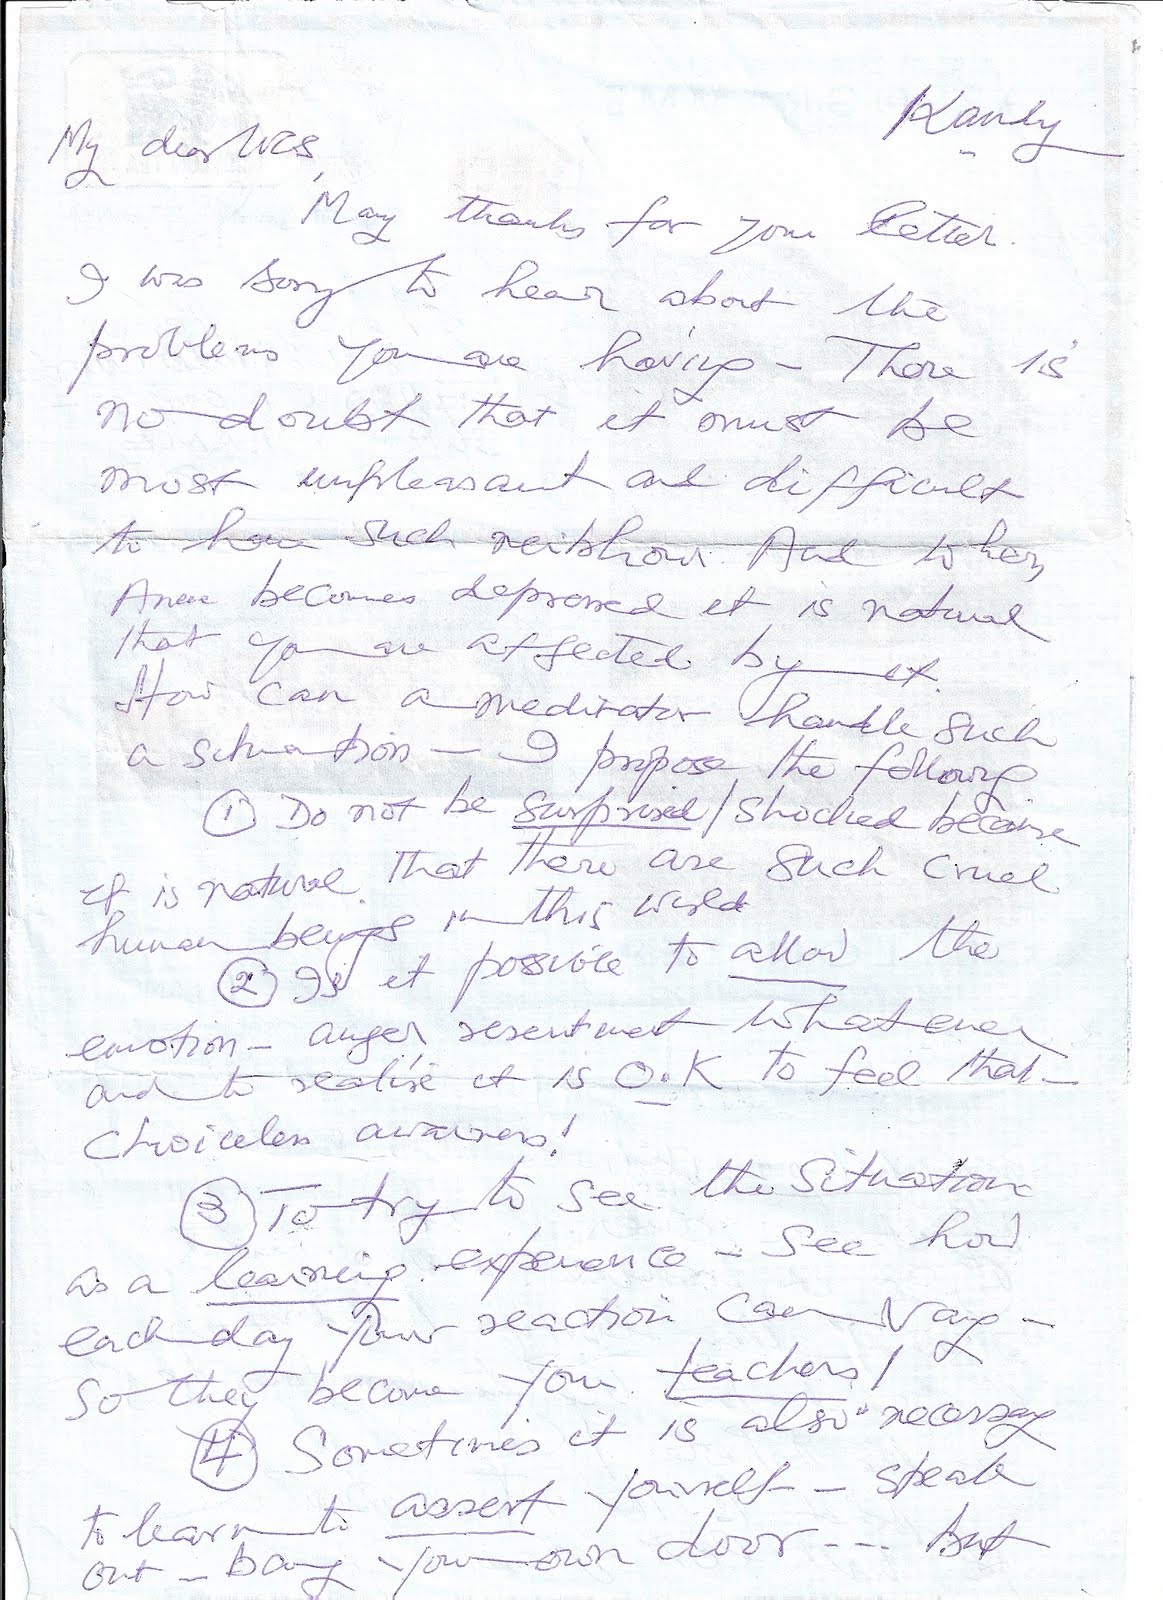 Kandy
My dear
May thanks for your letter.
I was sorry to hear about the
problems you are having – There is
no doubt that it must be
most unpleasant and difficult
to have such neibhour. And when
Anne becomes depressed it is natural
that you are affected by it.
How can a meditator handle such
a situation – I propose the following
① Do not be surprised / shocked because
it is natural that there are such cruel
human beings in this world
② Is it possible to allow the
emotion – anger, resentment whatever
and to realise it is O.K to feel that –
Choiceless awareness!
③ To try to see the situation
as a learning experience – see how
each day your reaction can vary –
So they become your teachers!
④ Sometimes it is also necessary
to learn to assert yourself – speak
out – bang your own door --- but